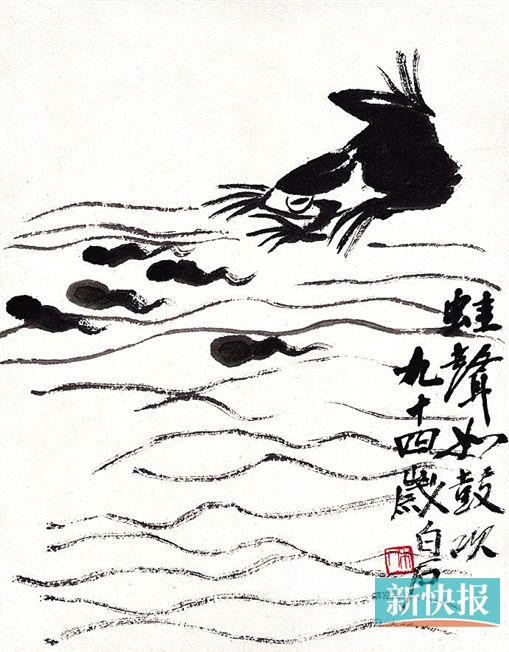 蛙聲如鼓吹
九十四歲白石
新快报